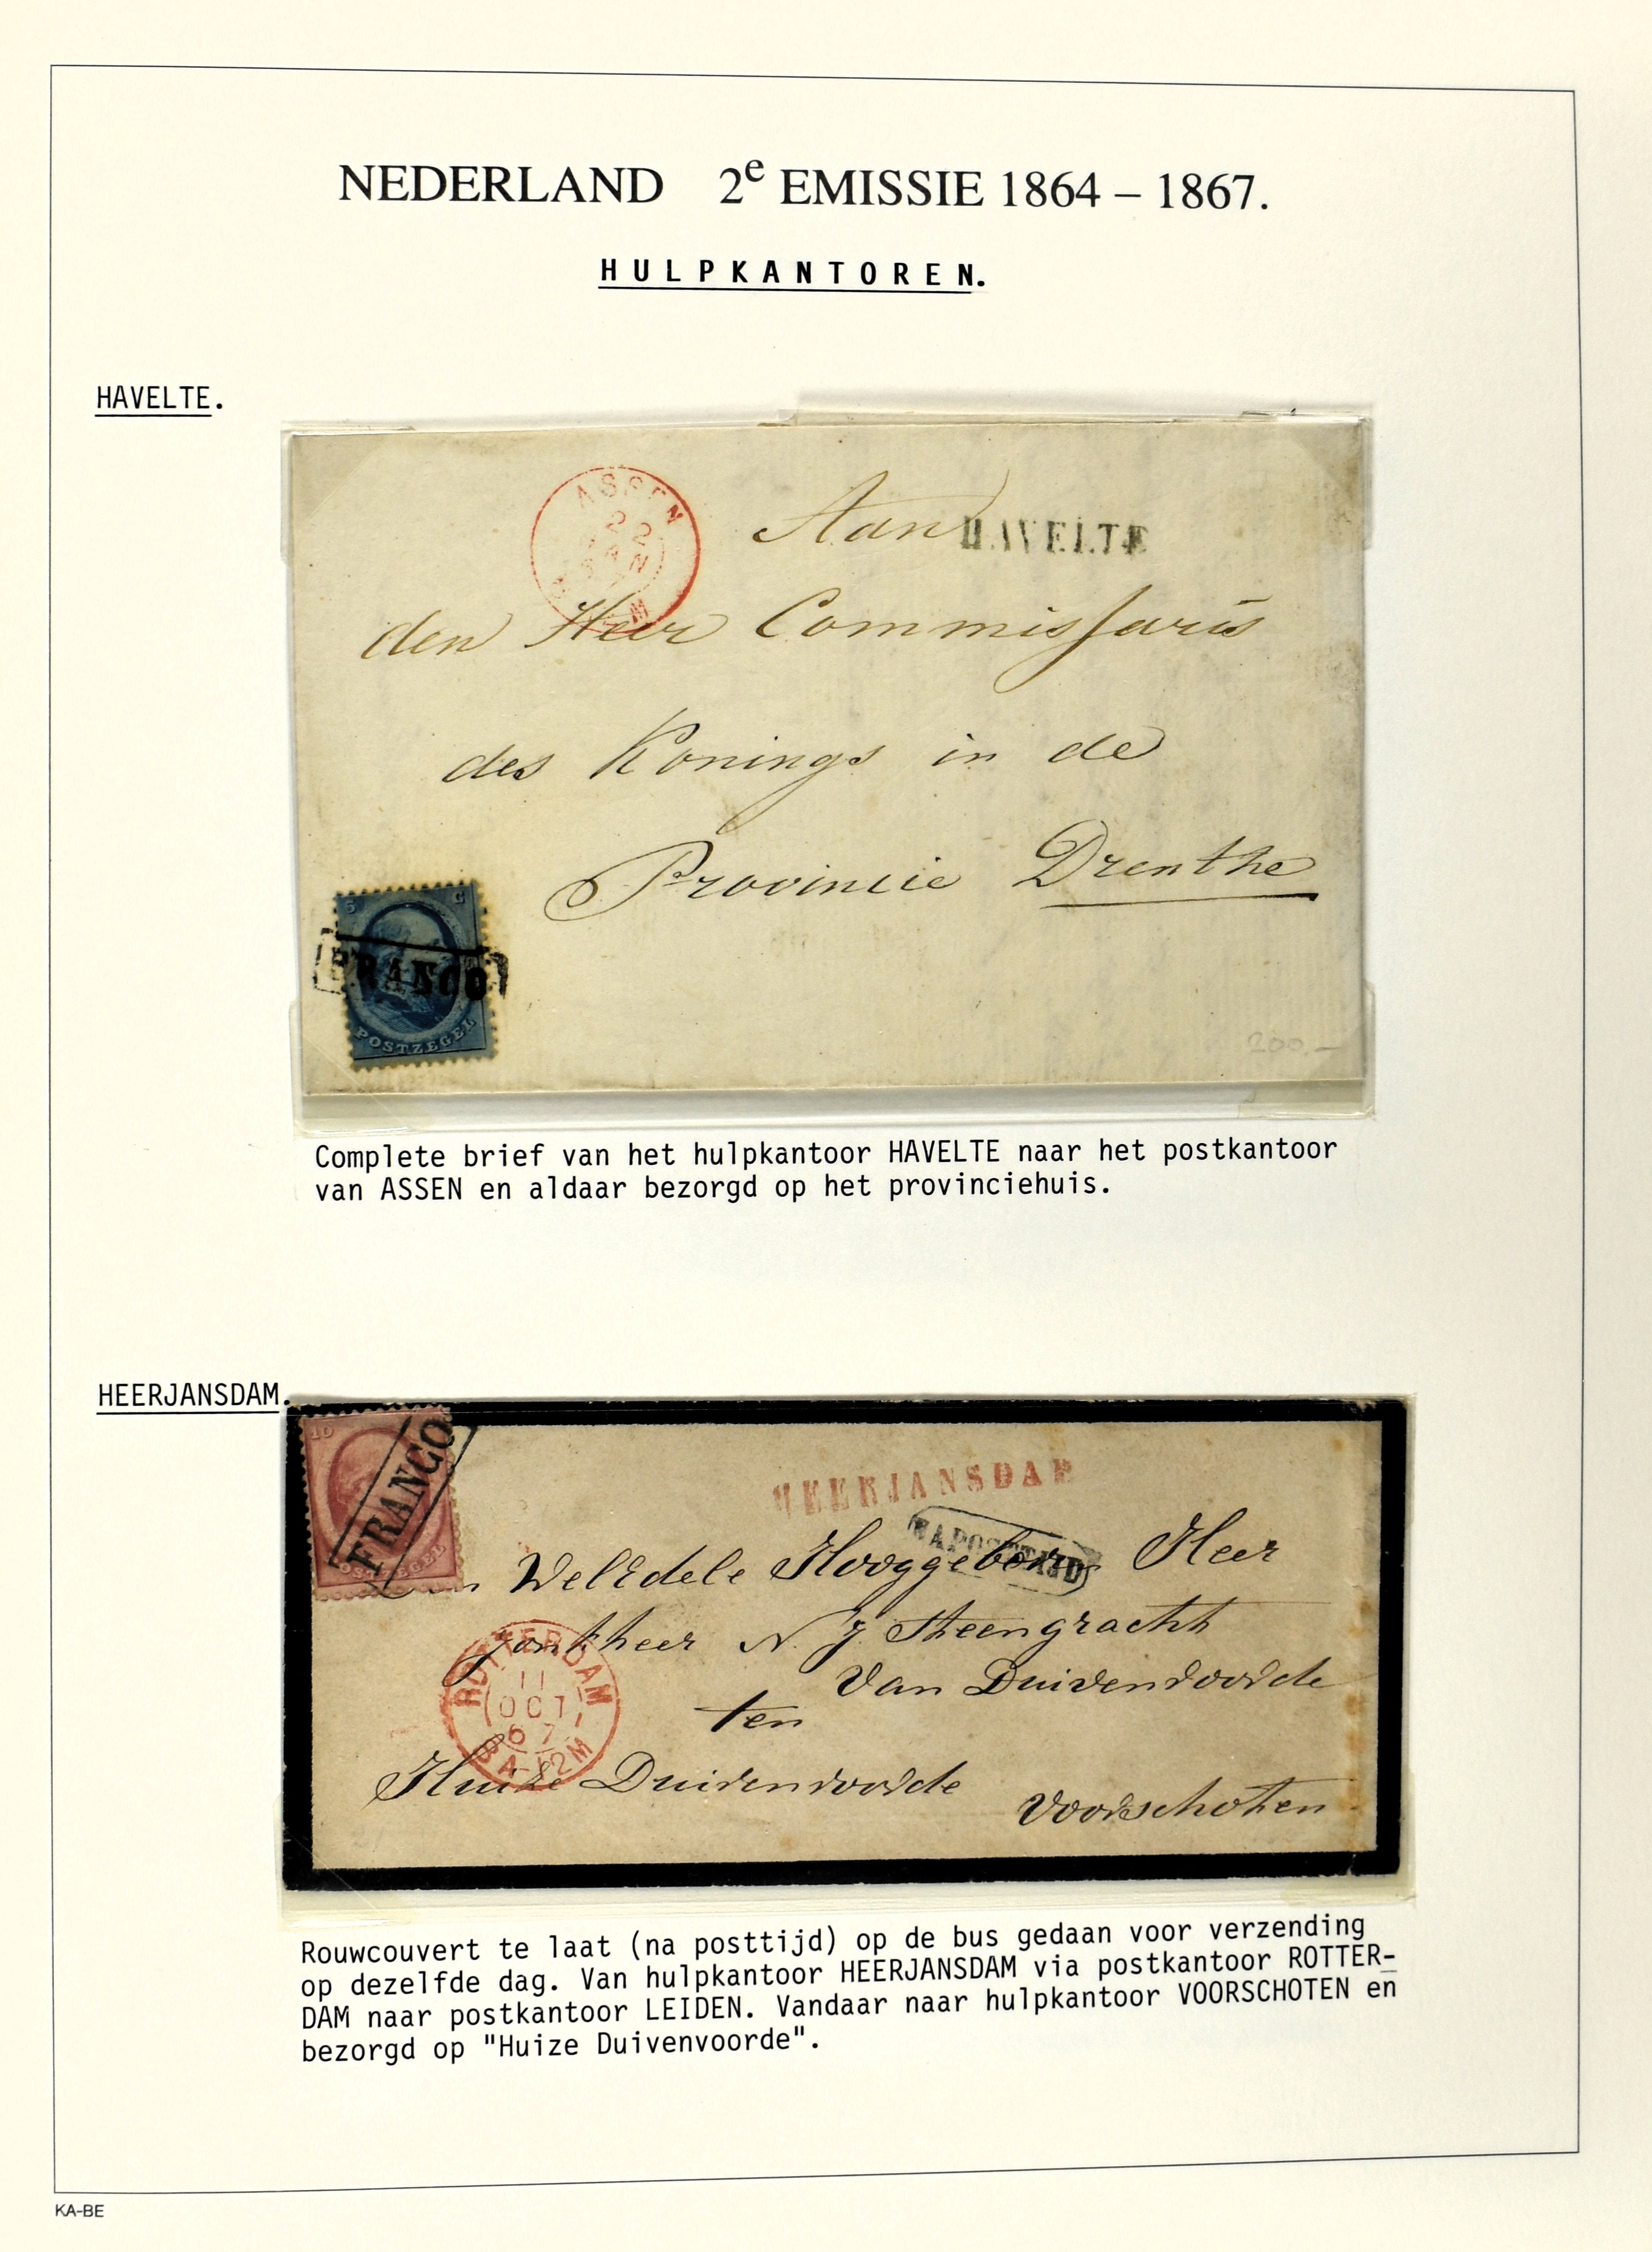 NEDERLAND 2e EMISSIE 1864 – 1867.
HULPKANTOREN.
HAVELTE.
ASSEN
22
JAN
Aan
HAVELTE
den Heer Commissaris
des Konings in de
Provincie Drenthe
5 C
FRANCO
POSTZEGEL
200,—
Complete brief van het hulpkantoor HAVELTE naar het postkantoor
van ASSEN en aldaar bezorgd op het provinciehuis.
HEERJANSDAM.
10
FRANCO
POSTZEGEL
HEERJANSDAM
NA POSTTIJD
WelEdele Hooggeboren Heer
Jonkheer N. J. Steengracht
Van Duivenvoorde
ten
ROTTERDAM
11
OCT
67
8A-12M
Huize Duivenvoorde
Voorschoten
Rouwcouvert te laat (na posttijd) op de bus gedaan voor verzending
op dezelfde dag. Van hulpkantoor HEERJANSDAM via postkantoor ROTTER-
DAM naar postkantoor LEIDEN. Vandaar naar hulpkantoor VOORSCHOTEN en
bezorgd op "Huize Duivenvoorde".
KA-BE